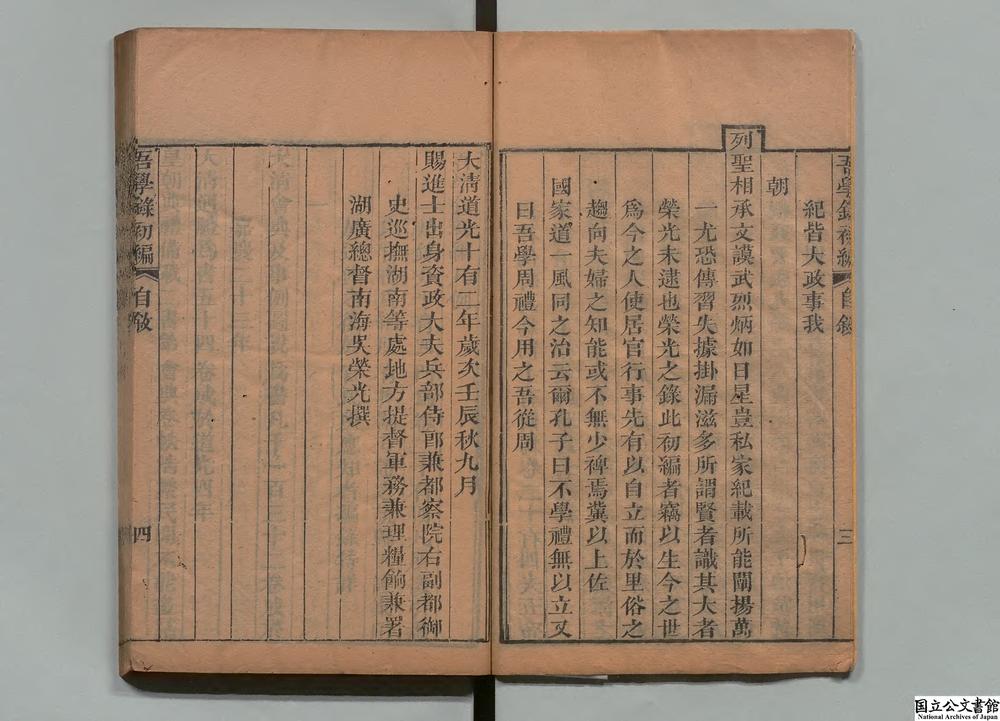 吾學錄初編 自敘 三
紀皆大政事我
朝
列聖相承文謨武烈炳如日星豈私家紀載所能闡揚萬
一尤恐傳習失據掛漏滋多所謂賢者識其大者
榮光未逮也榮光之錄此初編者竊以生今之世
爲今之人使居官行事先有以自立而於里俗之
趨向夫婦之知能或不無少裨焉冀以上佐
國家道一風同之治云爾孔子曰不學禮無以立又
曰吾學周禮今用之吾從周
大淸道光十有二年歲次壬辰秋九月
賜進士出身資政大夫兵部侍郞兼都察院右副都御
史巡撫湖南等處地方提督軍務兼理糧餉兼署
湖廣總督南海吳榮光撰
吾學錄初編 自敘 四
国立公文書館
National Archives of Japan